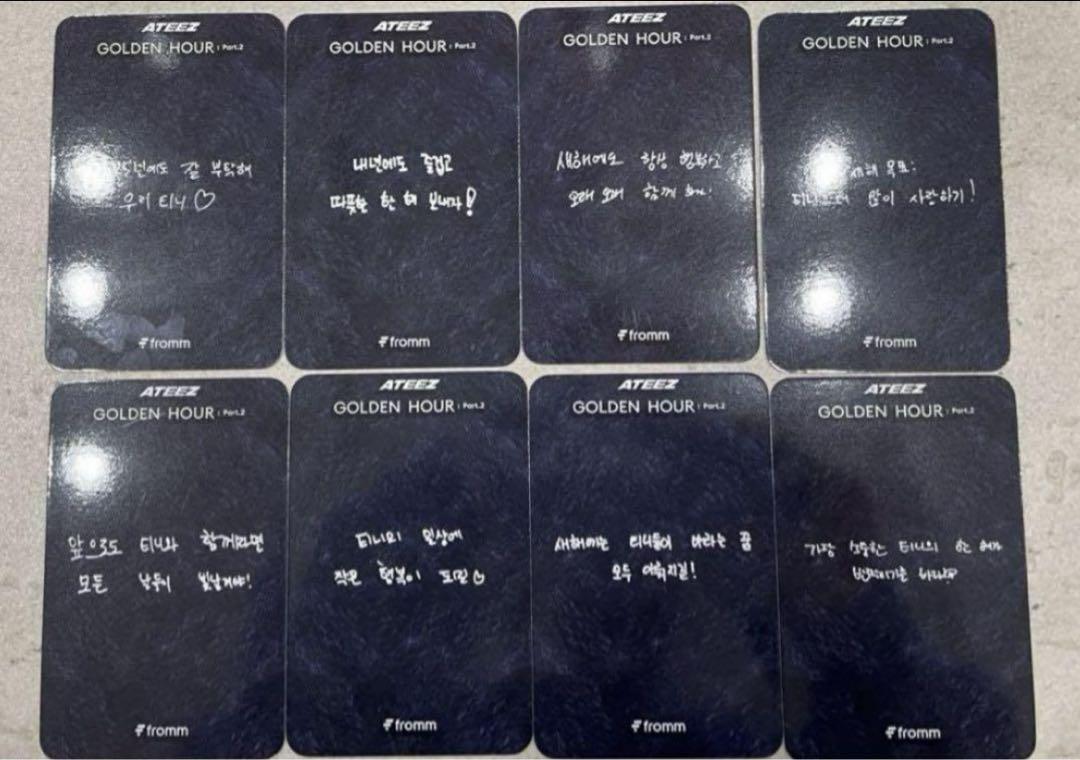 ATEEZ
GOLDEN HOUR : Part.2
25년에도 잘 부탁해
우리 티니♡
fromm
ATEEZ
GOLDEN HOUR : Part.2
내년에도 즐겁고
따뜻한 한 해 보내자!
fromm
ATEEZ
GOLDEN HOUR : Part.2
새해에도 항상 행복하고
오래 오래 함께
fromm
ATEEZ
GOLDEN HOUR : Part.2
새해 목표:
많이 사랑하기!
fromm
ATEEZ
GOLDEN HOUR : Part.2
앞으로도 티니와 함께라면
모든 날들이 빛날거야!
fromm
ATEEZ
GOLDEN HOUR : Part.2
티니의 일상에
작은 행복이 되길♡
fromm
ATEEZ
GOLDEN HOUR : Part.2
새해에는 티니들이 바라는 꿈
모두 이뤄지길!
fromm
ATEEZ
GOLDEN HOUR : Part.2
가장 소중한 티니의 한 해가
fromm